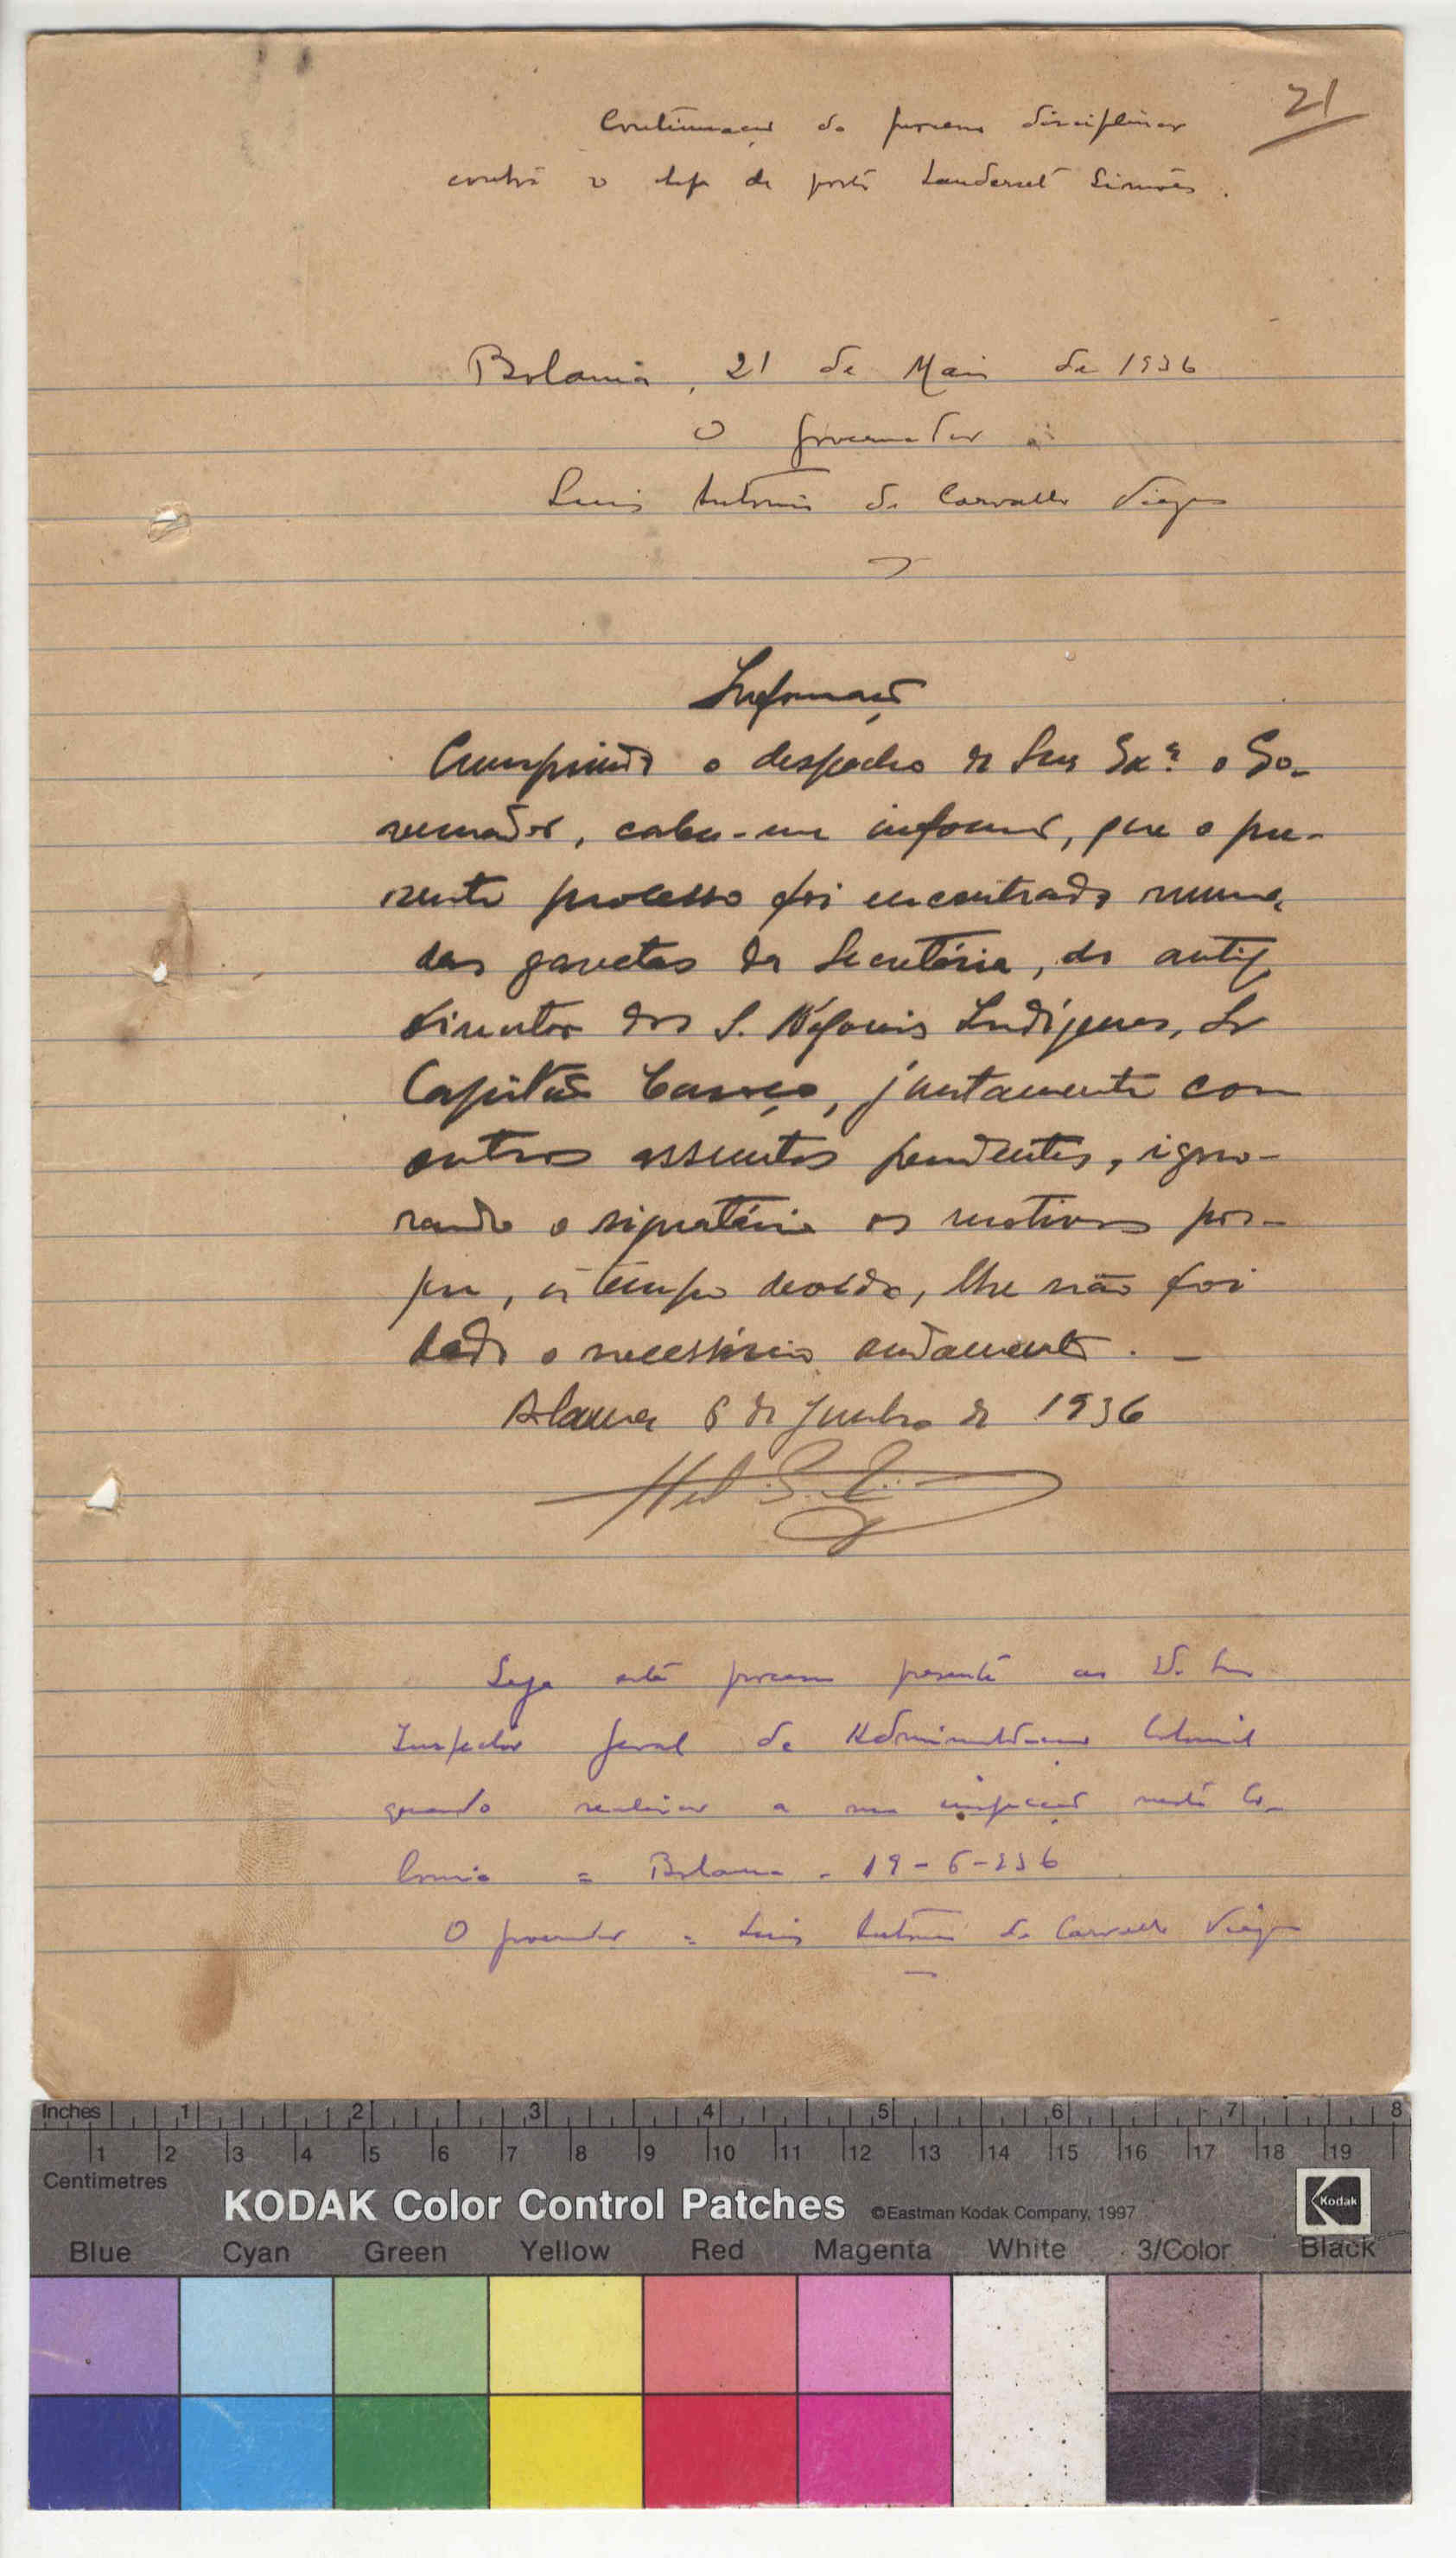 21
Continuação do processo disciplinar
contra o chefe de posto Landerset Simões.
Bolama, 21 de Maio de 1936
O Governador
Luis Antonio de Carvalho Viegas
Informação
Cumprindo o despacho de Sua Exª. o Go-
vernador, cabe-me informar, que o pre-
sente processo foi encontrado numa
das gavetas da Secretária, do antigo
director dos S. Negocios Indígenas, Sr
Capitão, juntamente com
outros assuntos pendentes, igno-
rando o signatário os motivos por-
que, a tempo devido, lhe não foi
dado o necessário andamento. -
Bolama 6 de Junho de 1936
Seja este processo presente ao
Inspector Geral de Administração Colonial
quando realizar a sua inspecção nesta Co-
lonia = Bolama - 19-6-936
O Governador = Luis Antonio de Carvalho Viegas
Inches 1 2 3 4 5 6 7 8
1 2 3 4 5 6 7 8 9 10 11 12 13 14 15 16 17 18 19
Centimetres
KODAK Color Control Patches ©Eastman Kodak Company, 1997 Kodak
Blue Cyan Green Yellow Red Magenta White 3/Color Black